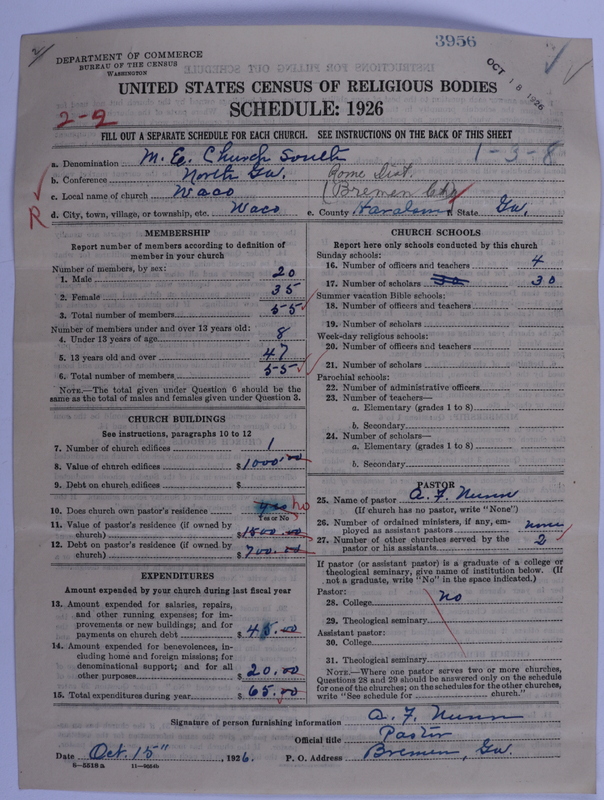 2
3956
DEPARTMENT OF COMMERCE
BUREAU OF THE CENSUS
WASHINGTON
OCT 18 1926
UNITED STATES CENSUS OF RELIGIOUS BODIES
SCHEDULE: 1926
2-2
FILL OUT A SEPARATE SCHEDULE FOR EACH CHURCH. SEE INSTRUCTIONS ON THE BACK OF THIS SHEET
1-3-8
a. Denomination M.E. Church South
b. Conference North Ga. Rome Dist.
c. Local name of church Waco (Bremen Chg
R
d. City, town, village, or township, etc. Waco e. County Haralson State Ga.
MEMBERSHIP
Report number of members according to definition of
member in your church
Number of members, by sex:
1. Male 20
2. Female 35
3. Total number of members 55
Number of members under and over 13 years old:
4. Under 13 years of age 8
5. 13 years old and over 47
6. Total number of members 55
NOTE.—The total given under Question 6 should be
same as the total of males and females given under Question 3.
CHURCH BUILDINGS
See instructions, paragraphs 10 to 12
7. Number of church edifices 1
8. Value of church edifices $1000.00
9. Debt on church edifices $
10. Does church own pastor's residence yes no
Yes or No
11. Value of pastor's residence (if owned by
church) $1800.00
12. Debt on pastor's residence (if owned by
church) $700.00
EXPENDITURES
Amount expended by your church during last fiscal year
13. Amount expended for salaries, repairs,
and other running expenses; for im-
provements or new buildings; and for
payments on church debt $45.00
14. Amount expended for benevolences, in-
cluding home and foreign missions; for
denominational support; and for all
other purposes $20.00
15. Total expenditures during year $65.00
CHURCH SCHOOLS
Report here only schools conducted by this church
Sunday schools:
16. Number of officers and teachers 4
17. Number of scholars 30 30
Summer vacation Bible schools:
18. Number of officers and teachers
19. Number of scholars
Week-day religious schools:
20. Number of officers and teachers
21. Number of scholars
Parochial schools:
22. Number of administrative officers
23. Number of teachers—
a. Elementary (grades 1 to 8)
b. Secondary
24. Number of scholars—
a. Elementary (grades 1 to 8)
b. Secondary
PASTOR
25. Name of pastor A. F. Nunn
(If church has no pastor, write "None")
26. Number of ordained ministers, if any, em-
ployed as assistant pastors none
27. Number of other churches served by the
pastor or his assistants 2
If pastor (or assistant pastor) is a graduate of a college or
theological seminary, give name of institution below. (If
not a graduate, write "No" in the space indicated.)
Pastor:
28. College No
29. Theological seminary
Assistant pastor:
30. College
31. Theological seminary
NOTE.—Where one pastor serves two or more churches,
Questions 28 and 29 should be answered only on the schedule
for one of the churches; on the schedules for the other churches,
write "See schedule for church."
Signature of person furnishing information A. F. Nunn
Official title Pastor
Date Oct. 15", 1926. P. O. Address Bremen, Ga.
8—5518 a 11—9664b